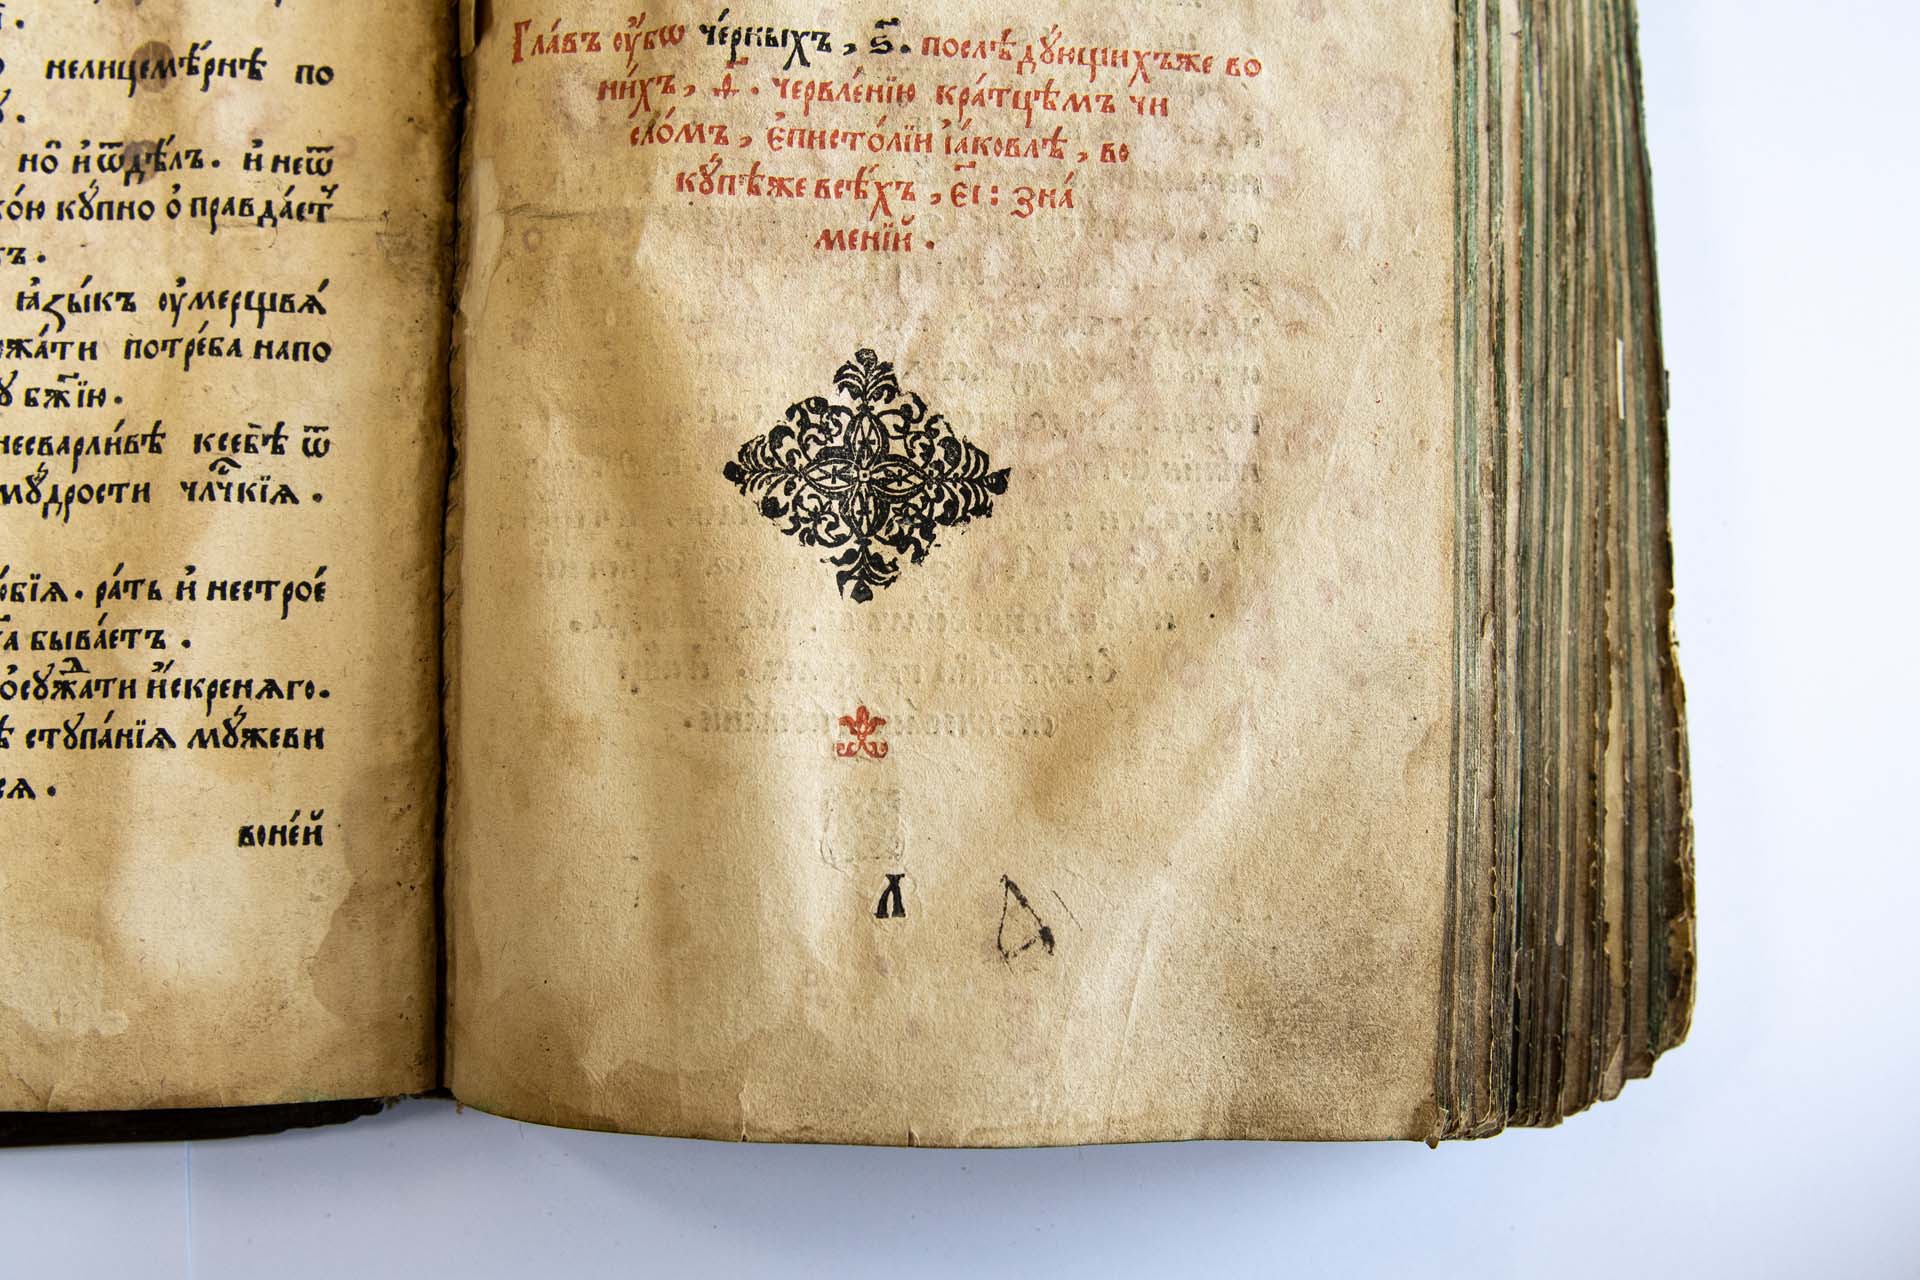 нелицемѣ́рнѣ по
но̑ и҆ ѿдѣ́лъ. и҆ неѿ
ко́ю кꙋ́пно ѻ҆правда́етъ
ѩ҆зы́къ ᲂу҆мерщвѧ́
потре́ба напо
бж҃їю.
несварли́вѣ ксебѣ̀ ѿ
мꙋ́дрости чл҃чкїѧ.
ра́ть и҆ нестрое́
быва́етъ.
ѻ҆сꙋжда́ти и҆́скренѧго.
стꙋпа́нїѧ мꙋ́жеви
сѧ.
воне́й
Гла́въ ᲂу҆́бѡ че́рныхъ, ѕ҃. послѣ́дꙋющихъже во
ни́хъ, ѳ҃. червле́нїю кра́тцѣмъ чи
сло́мъ, є҆писто́лїи і҆а́ковлѣ, во
кꙋ́пѣже всѣ́хъ, є҃і: зна́
менїй.
л